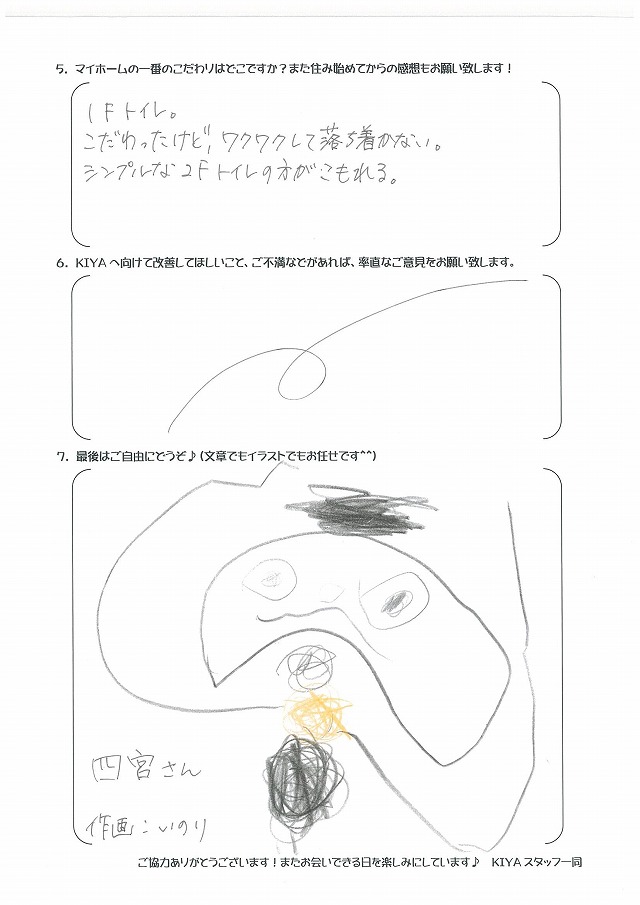 5. マイホームの一番のこだわりはどこですか？また住み始めてからの感想もお願い致します！
1Fトイレ。
こだわったけど、ワクワクして落ち着かない。
シンプルな2Fトイレの方がこもれる。
6. KIYAへ向けて改善してほしいこと、ご不満などがあれば、率直なご意見をお願い致します。
7. 最後はご自由にどうぞ♪(文章でもイラストでもお任せです^^)
四宮さん
作画：いのり
ご協力ありがとうございます！またお会いできる日を楽しみにしています♪ KIYAスタッフ一同